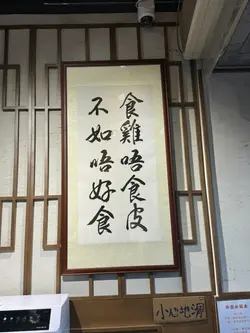 食雞唔食皮
不如唔好食
小心地滑